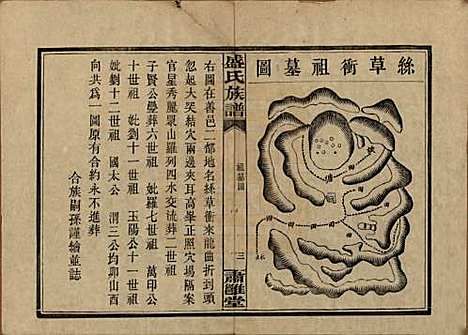 絲草衝祖墓圖
盛氏族譜
祖墓圖
三
肅雝堂
右圖在善邑二都地名絲草衝來龍曲折到頭
忽起大突結穴兩邊夾耳高聳穴塲隔案
官星秀麗眾山羅列四水交流葬二世祖
子賢公曁葬六世祖 妣羅七世祖 萬印公
十世祖 妣劉十一世祖 玉陽公十一世祖
妣劉十二世祖 國太公 渭三公均卯山酉
向共爲一圖原有合約永不進葬
合族嗣孫謹繪並誌